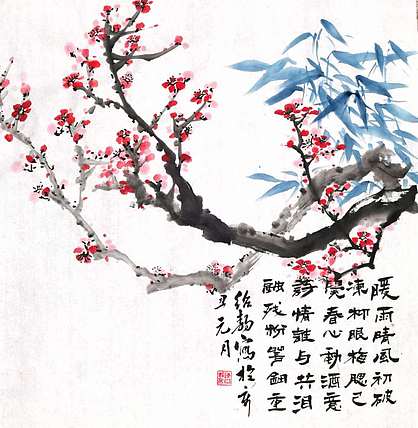 暖雨晴風初破
凍柳眼梅腮已
覺春心動酒意
詩情誰與共泪
融残粉花鈿重
寫於辛
丑元月